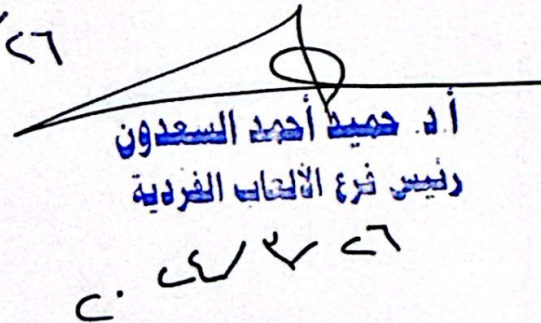 /٢٦
أ.د. حميد أحمد السعدون
رئيس فرع الألعاب الفردية
٢٠٢٤/٣/٢٦